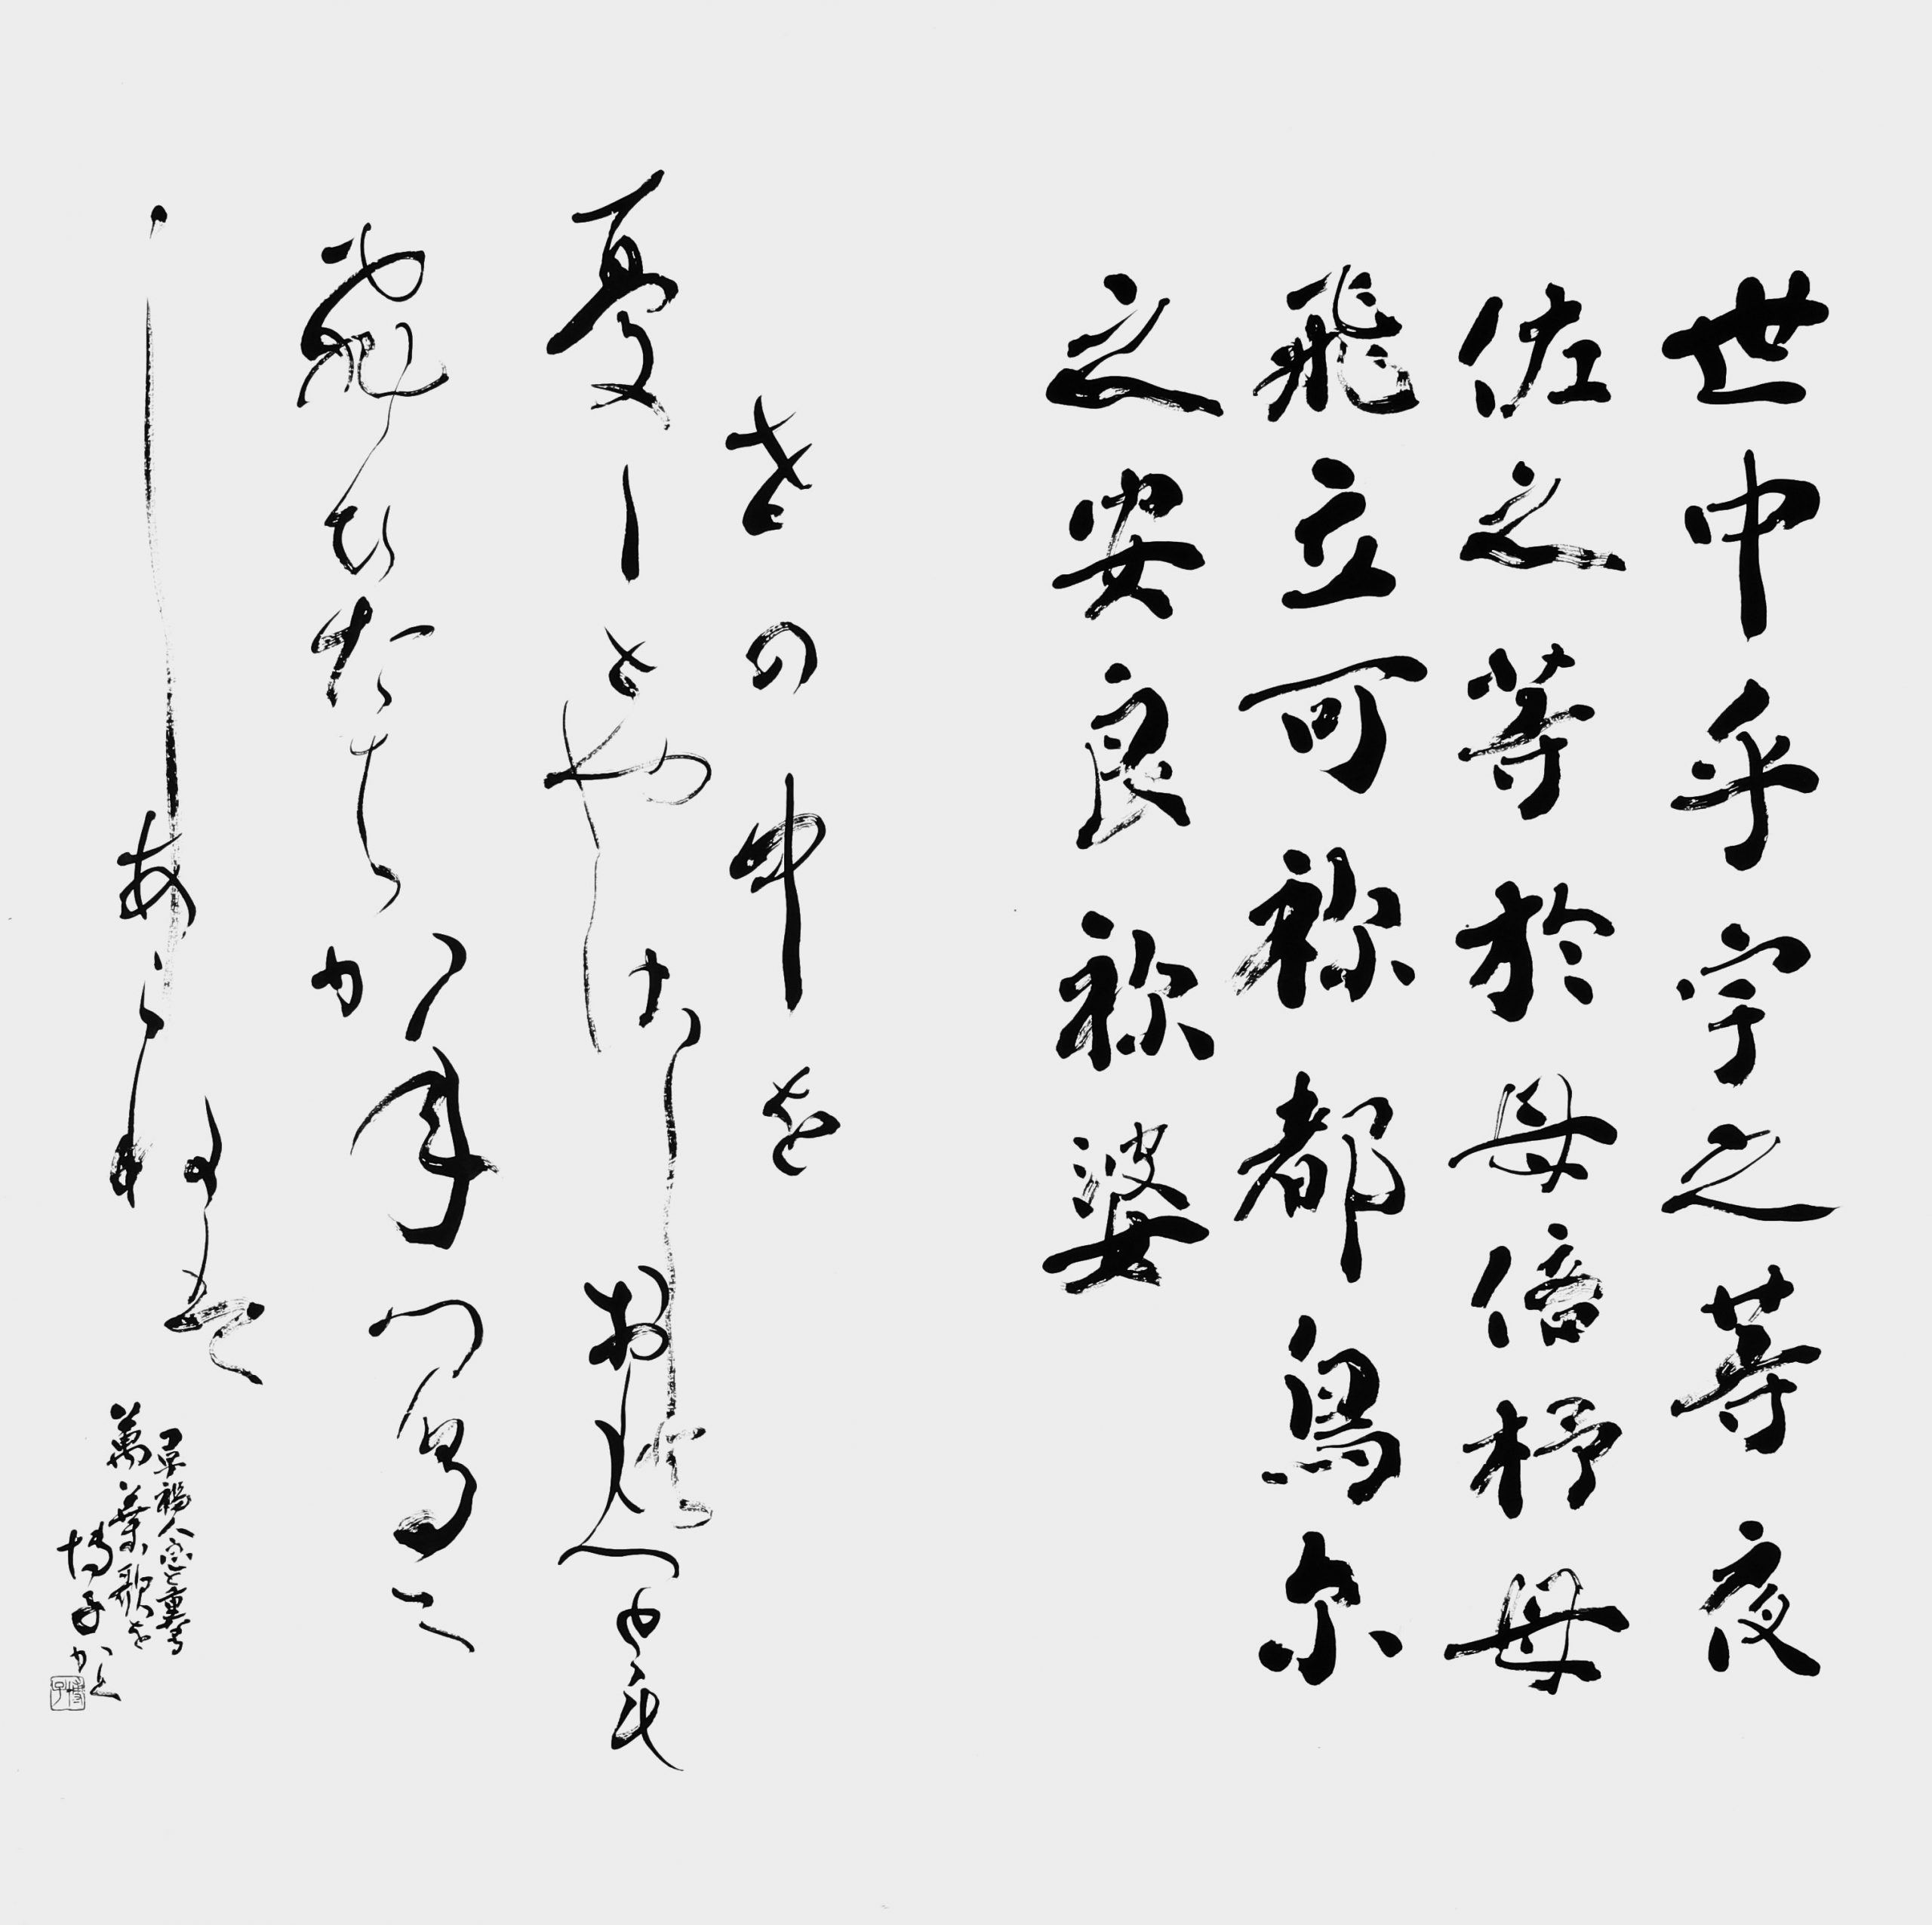 世中乎宇之等夜
佐之等於母倍杼母
飛立可祢都鳥尓
之安良祢婆
せの中を
憂しとやさしとおもへとも
飛ひたちかねつ鳥に
しあらねは
萬葉歌を
博子かく